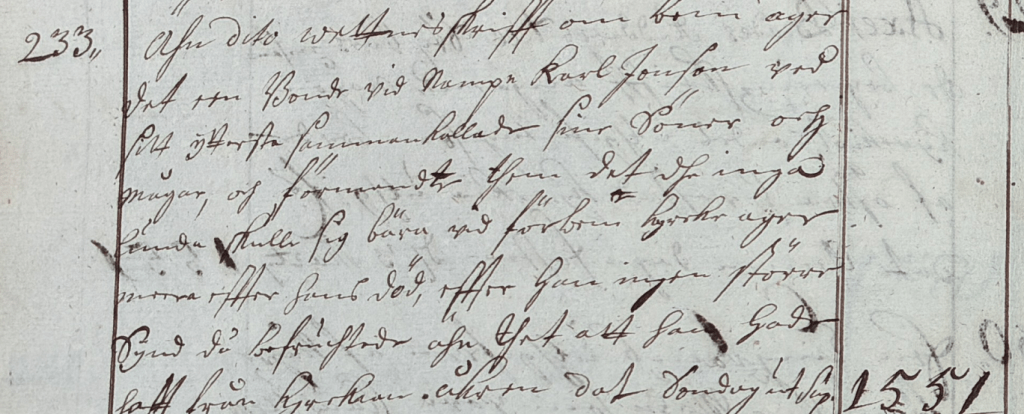 233,, Ähn dito wettnesskrifft om bem: ager
det een Bonde vid Nampn Karl Jonson ved
sitt ytterste sammankallade sine Söner och
mågar, och förmandte them det dhe inga
skulle sig bära vid förbem:te kyrke ager
meera effter hans död, effter han ingen större
Synd då befruchtede ähn thet att han hade
hafft från kyrkian. åhren dat Söndag
1551